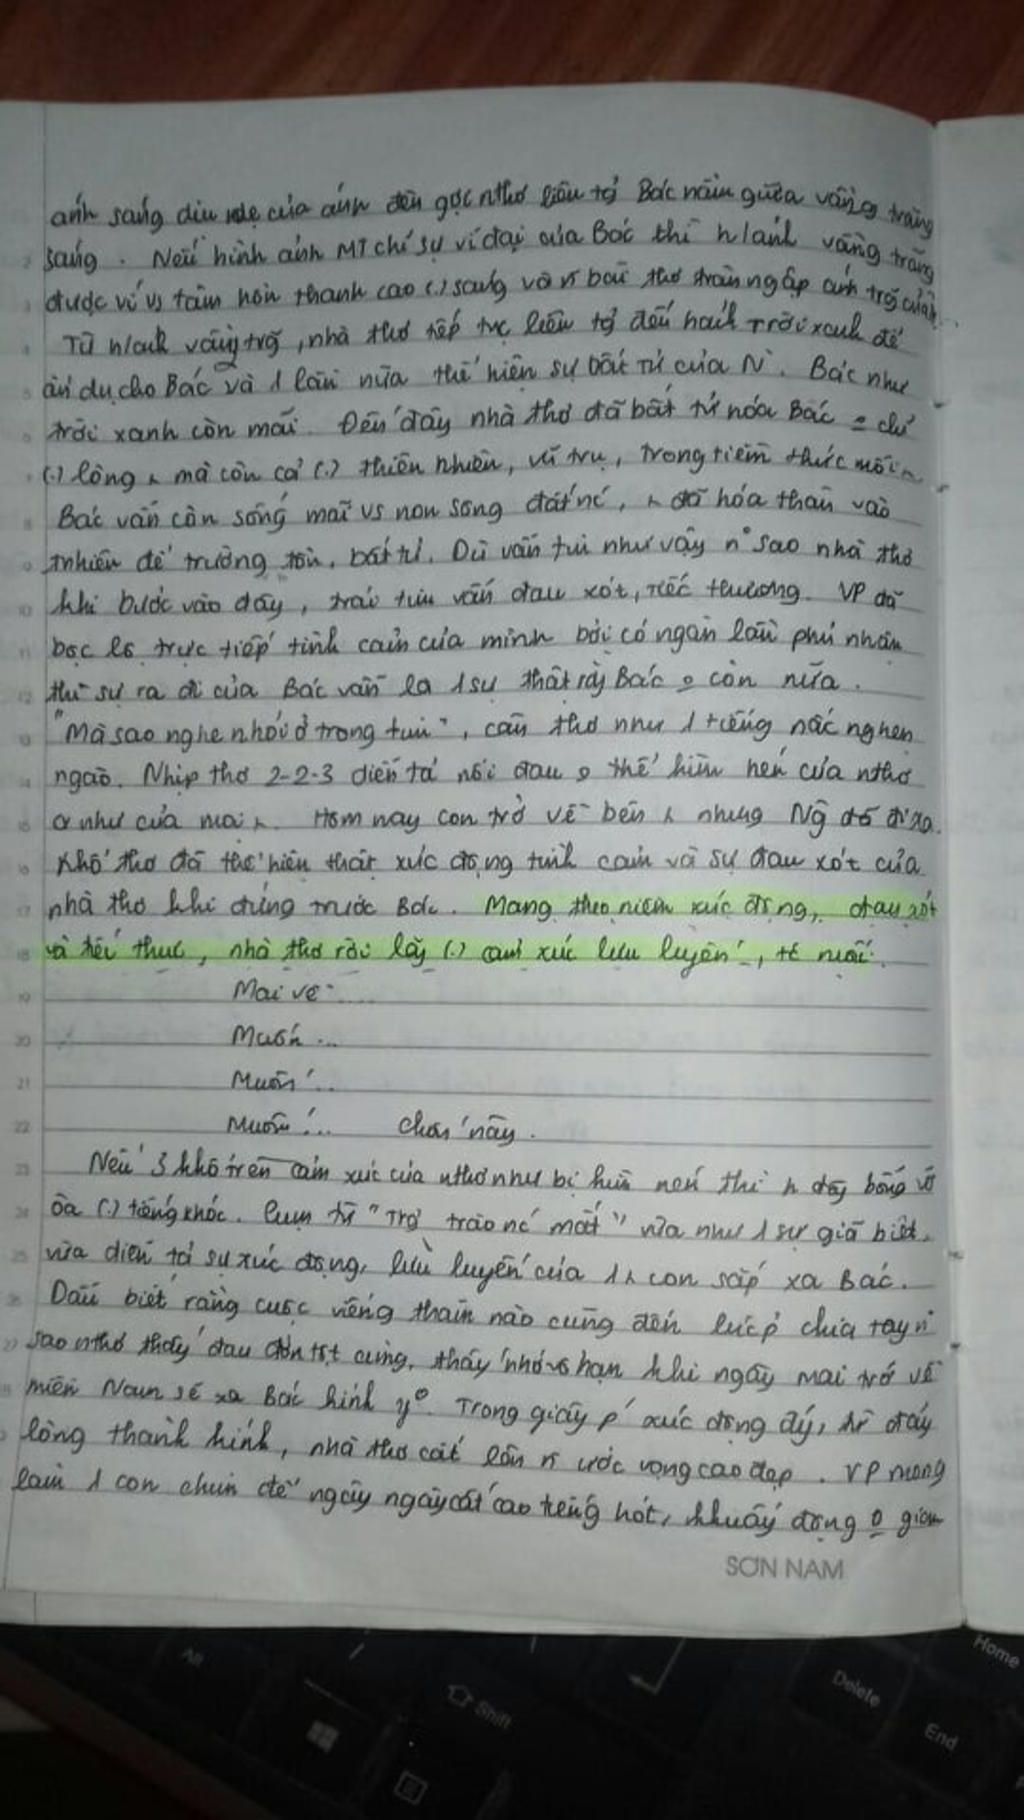 ánh sáng dịu nhẹ của ánh đèn gợi nthơ liên tg Bác nằm giữa vầng trăng
sáng. Nếu hình ảnh MT chỉ sự vĩ đại của Bác thì h/ảnh vầng trăng
được ví vs tâm hồn thanh cao (.) sáng và n~ bài thơ tràn ngập ánh trg của
Từ h/ảnh vầng trg, nhà thơ tiếp tục liên tg đến hả Trời xanh để
ẩn dụ cho Bác và 1 lần nữa thể hiện sự bất tử của N. Bác như
trời xanh còn mãi. Đến đây nhà thơ đã bất tử hóa Bác chỉ
(.) lòng mà còn cả (.) thiên nhiên, vũ trụ, trong tiềm thức mỗi
Bác vẫn còn sống mãi vs non sông đất nc, đã hóa thân vào
tnhiên để trường tồn, bất tử. Dù vẫn tin như vậy n° sao nhà thơ
khi bước vào đây, trái tim vẫn đau xót, tiếc thương. VP đã
bộc lộ trực tiếp tình cảm của mình bởi có ngàn lần phủ nhận
thì sự ra đi của Bác vẫn là 1 sự thật rằng Bác o còn nữa.
"Mà sao nghe nhói ở trong tim", câu thơ như 1 tiếng nấc nghẹn
ngào. Nhịp thơ 2-2-3 diễn tả nỗi đau o thể kìm nén của nthơ
cx như của mọi. Hôm nay con trở về bên nhưng Ng đã đi xa.
Khổ thơ đã thể hiện thật xúc động tình cảm và sự đau xót của
nhà thơ khi đứng trước Bác. Mang theo niềm xúc động, đau xót
và tiếc thươg, nhà thơ rời lăg (.) cảm xúc lưu luyến,
Mai về ...
Muốn ...
Muốn ...
Muốn ... chốn này.
Nếu 3 khổ trên cảm xúc của nthơ như bị kìm nén thì h đây bỗng vỡ
òa (.) tiếng khóc. Cụm từ "Trg trào nc mắt" vừa như 1 sự giã biệt,
vừa diễn tả sự xúc động, lưu luyến của con sắp xa Bác.
Dẫu biết rằng cuộc viếng thăm nào cũng đến lúc p' chia tay n°
sao nthơ thấy đau đớn tột cùng, thấy nhớ vô hạn khi ngày mai trở về
miền Nam sẽ xa Bác kính y°. Trong giây p' xúc động ấy, từ đáy
lòng thành kính, nhà thơ cất lên n~ ước vọng cao đẹp. VP mong
làm 1 con chim để ngày ngày cất cao tiếng hót, khuấy động o gian
SƠN NAM
Alt
Shift
Delete
End
Home